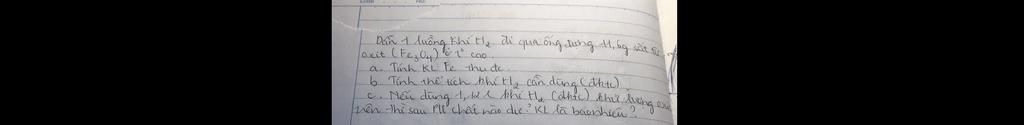 Dẫn 1 luồng khí H₂ đi qua ống đựng 11,6g sắt từ
oxit (Fe₃O₄) ở t° cao.
a. Tính KL Fe thu đc.
b. Tính thể tích khí H₂ cần dùng (đktc)
c. Nếu dùng 1,12 l khí H₂ (đktc) khử lượng oxit
trên thì sau PƯ chất nào dư? KL là bao nhiêu?